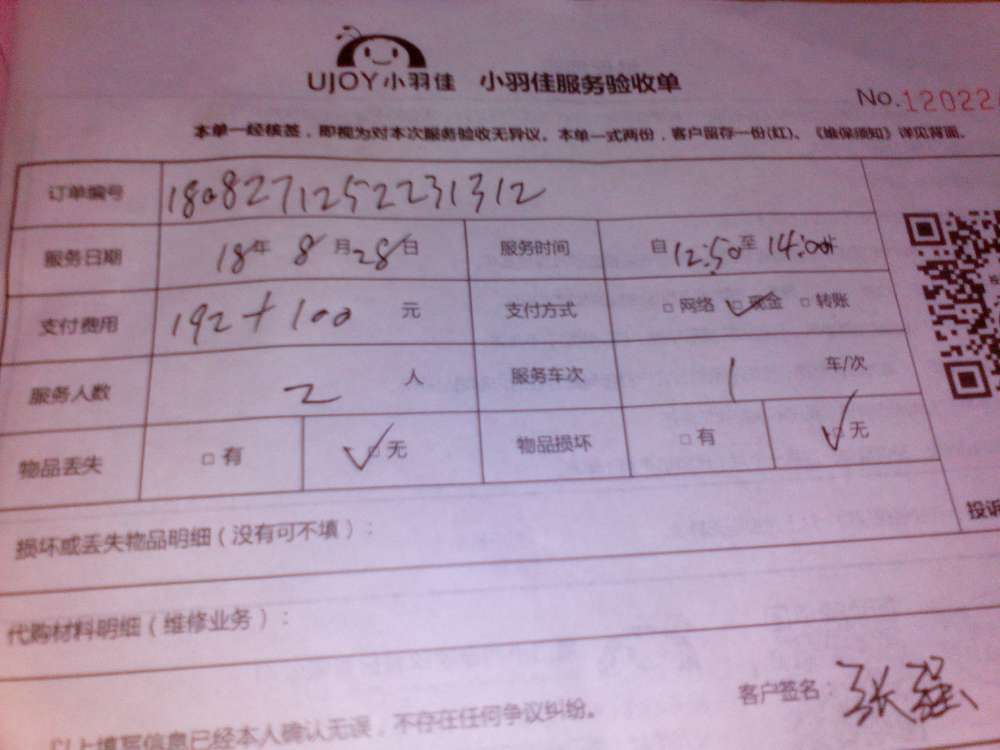 UJOY小羽佳 小羽佳服务验收单
No.12022
本单一经核签，即视为对本次服务验收无异议。本单一式两份，客户留存一份(红)、《维保须知》详见背面。
订单编号 1808271252231312
服务日期 18年 8月28日 服务时间 自12:50至14:00止
支付费用 192+100 元 支付方式 □网络 ☑现金 □转账
服务人数 2 人 服务车次 1 车/次
物品丢失 □有 ☑无 物品损坏 □有 ☑无
投诉
损坏或丢失物品明细（没有可不填）：
代购材料明细（维修业务）：
客户签名：张强
以上填写信息已经本人确认无误，不存在任何争议纠纷。